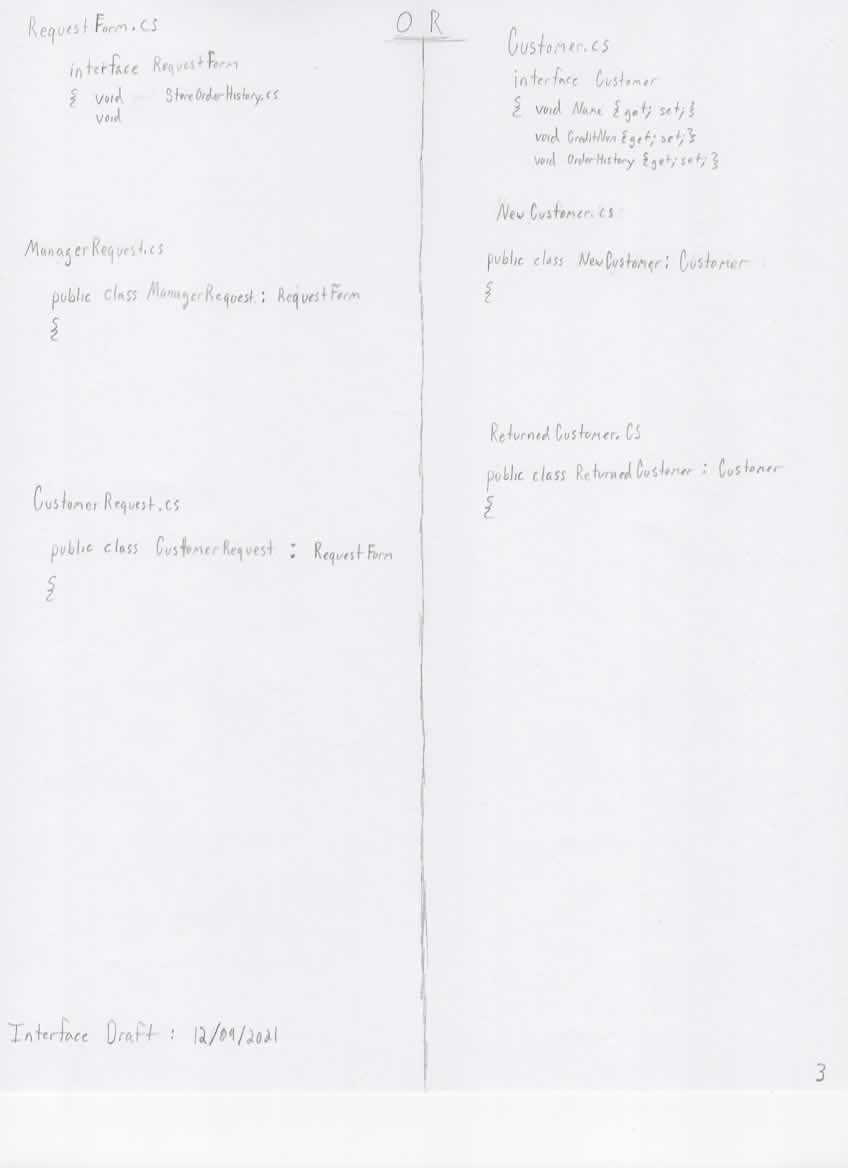 O R
RequestForm.cs
interface RequestForm
{ void StoreOrderHistory.cs
void
ManagerRequest.cs
public class ManagerRequest : RequestForm
{
CustomerRequest.cs
public class CustomerRequest : RequestForm
{
Interface Draft : 12/09/2021
Customer.cs
interface Customer
{ void Name {get; set;}
void CreditNum {get; set;}
void OrderHistory {get; set;}
NewCustomer.cs
public class NewCustomer : Customer
{
ReturnedCustomer.cs
public class ReturnedCustomer : Customer
{
3